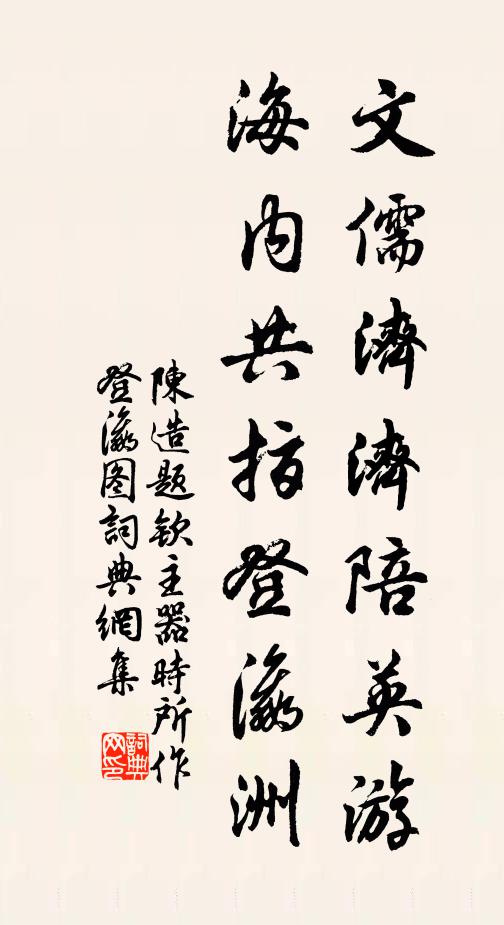 文儒濟濟陪英游
海内共指登瀛洲
陳造題欽主器時所作
登瀛图詞典網集
詞典网印